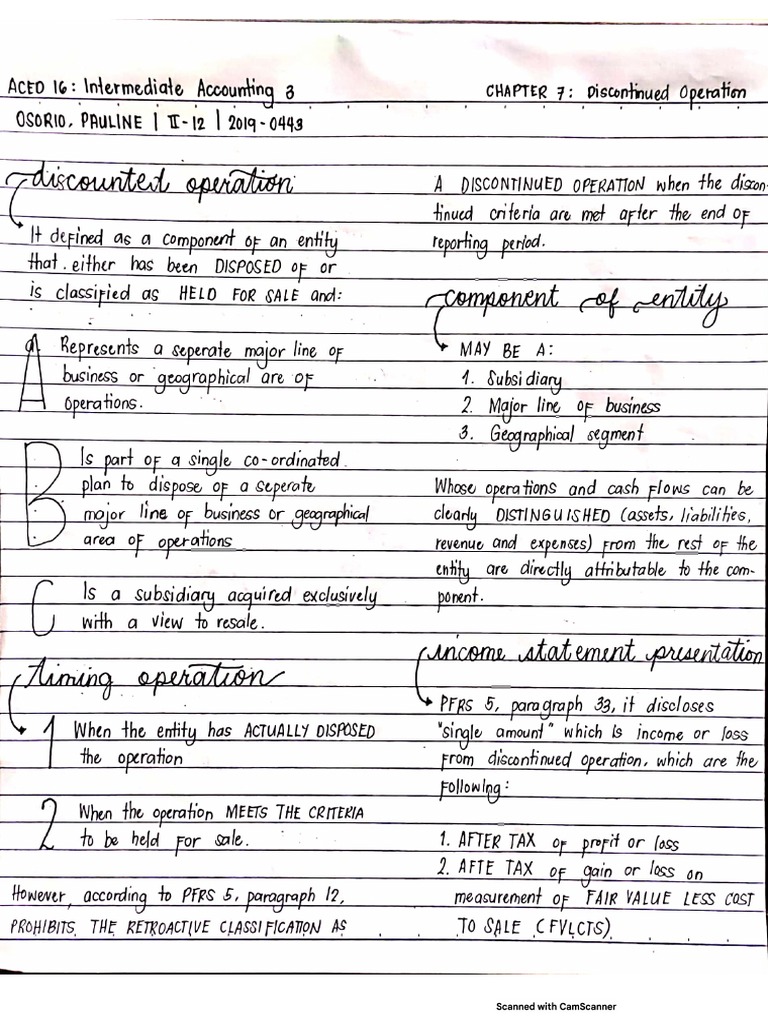 ACED 16: Intermediate Accounting 3
CHAPTER 7: Discontinued Operation
OSORIO, PAULINE | II-12 | 2019-0443
discounted operation
It defined as a component of an entity
that either has been DISPOSED OF or
is classified as HELD FOR SALE and:
A Represents a seperate major line of
business or geographical are of
operations.
B Is part of a single co-ordinated
plan to dispose of a seperate
major line of business or geographical
area of operations
C Is a subsidiary acquired exclusively
with a view to resale.
timing operation
1 When the entity has ACTUALLY DISPOSED
the operation
2 When the operation MEETS THE CRITERIA
to be held for sale.
However, according to PFRS 5, paragraph 12,
PROHIBITS THE RETROACTIVE CLASSIFICATION AS
A DISCONTINUED OPERATION when the discon-
tinued criteria are met after the end of
reporting period.
component of entity
MAY BE A:
1. Subsidiary
2. Major line of business
3. Geographical segment
Whose operations and cash flows can be
clearly DISTINGUISHED (assets, liabilities,
revenue and expenses) from the rest of the
entity are directly attributable to the com-
ponent.
income statement presentation
PFRS 5, paragraph 33, it discloses
"single amount" which is income or loss
from discontinued operation, which are the
following:
1. AFTER TAX of profit or loss
2. AFTE TAX of gain or loss on
measurement of FAIR VALUE LESS COST
TO SALE (FVLCTS)
Scanned with CamScanner